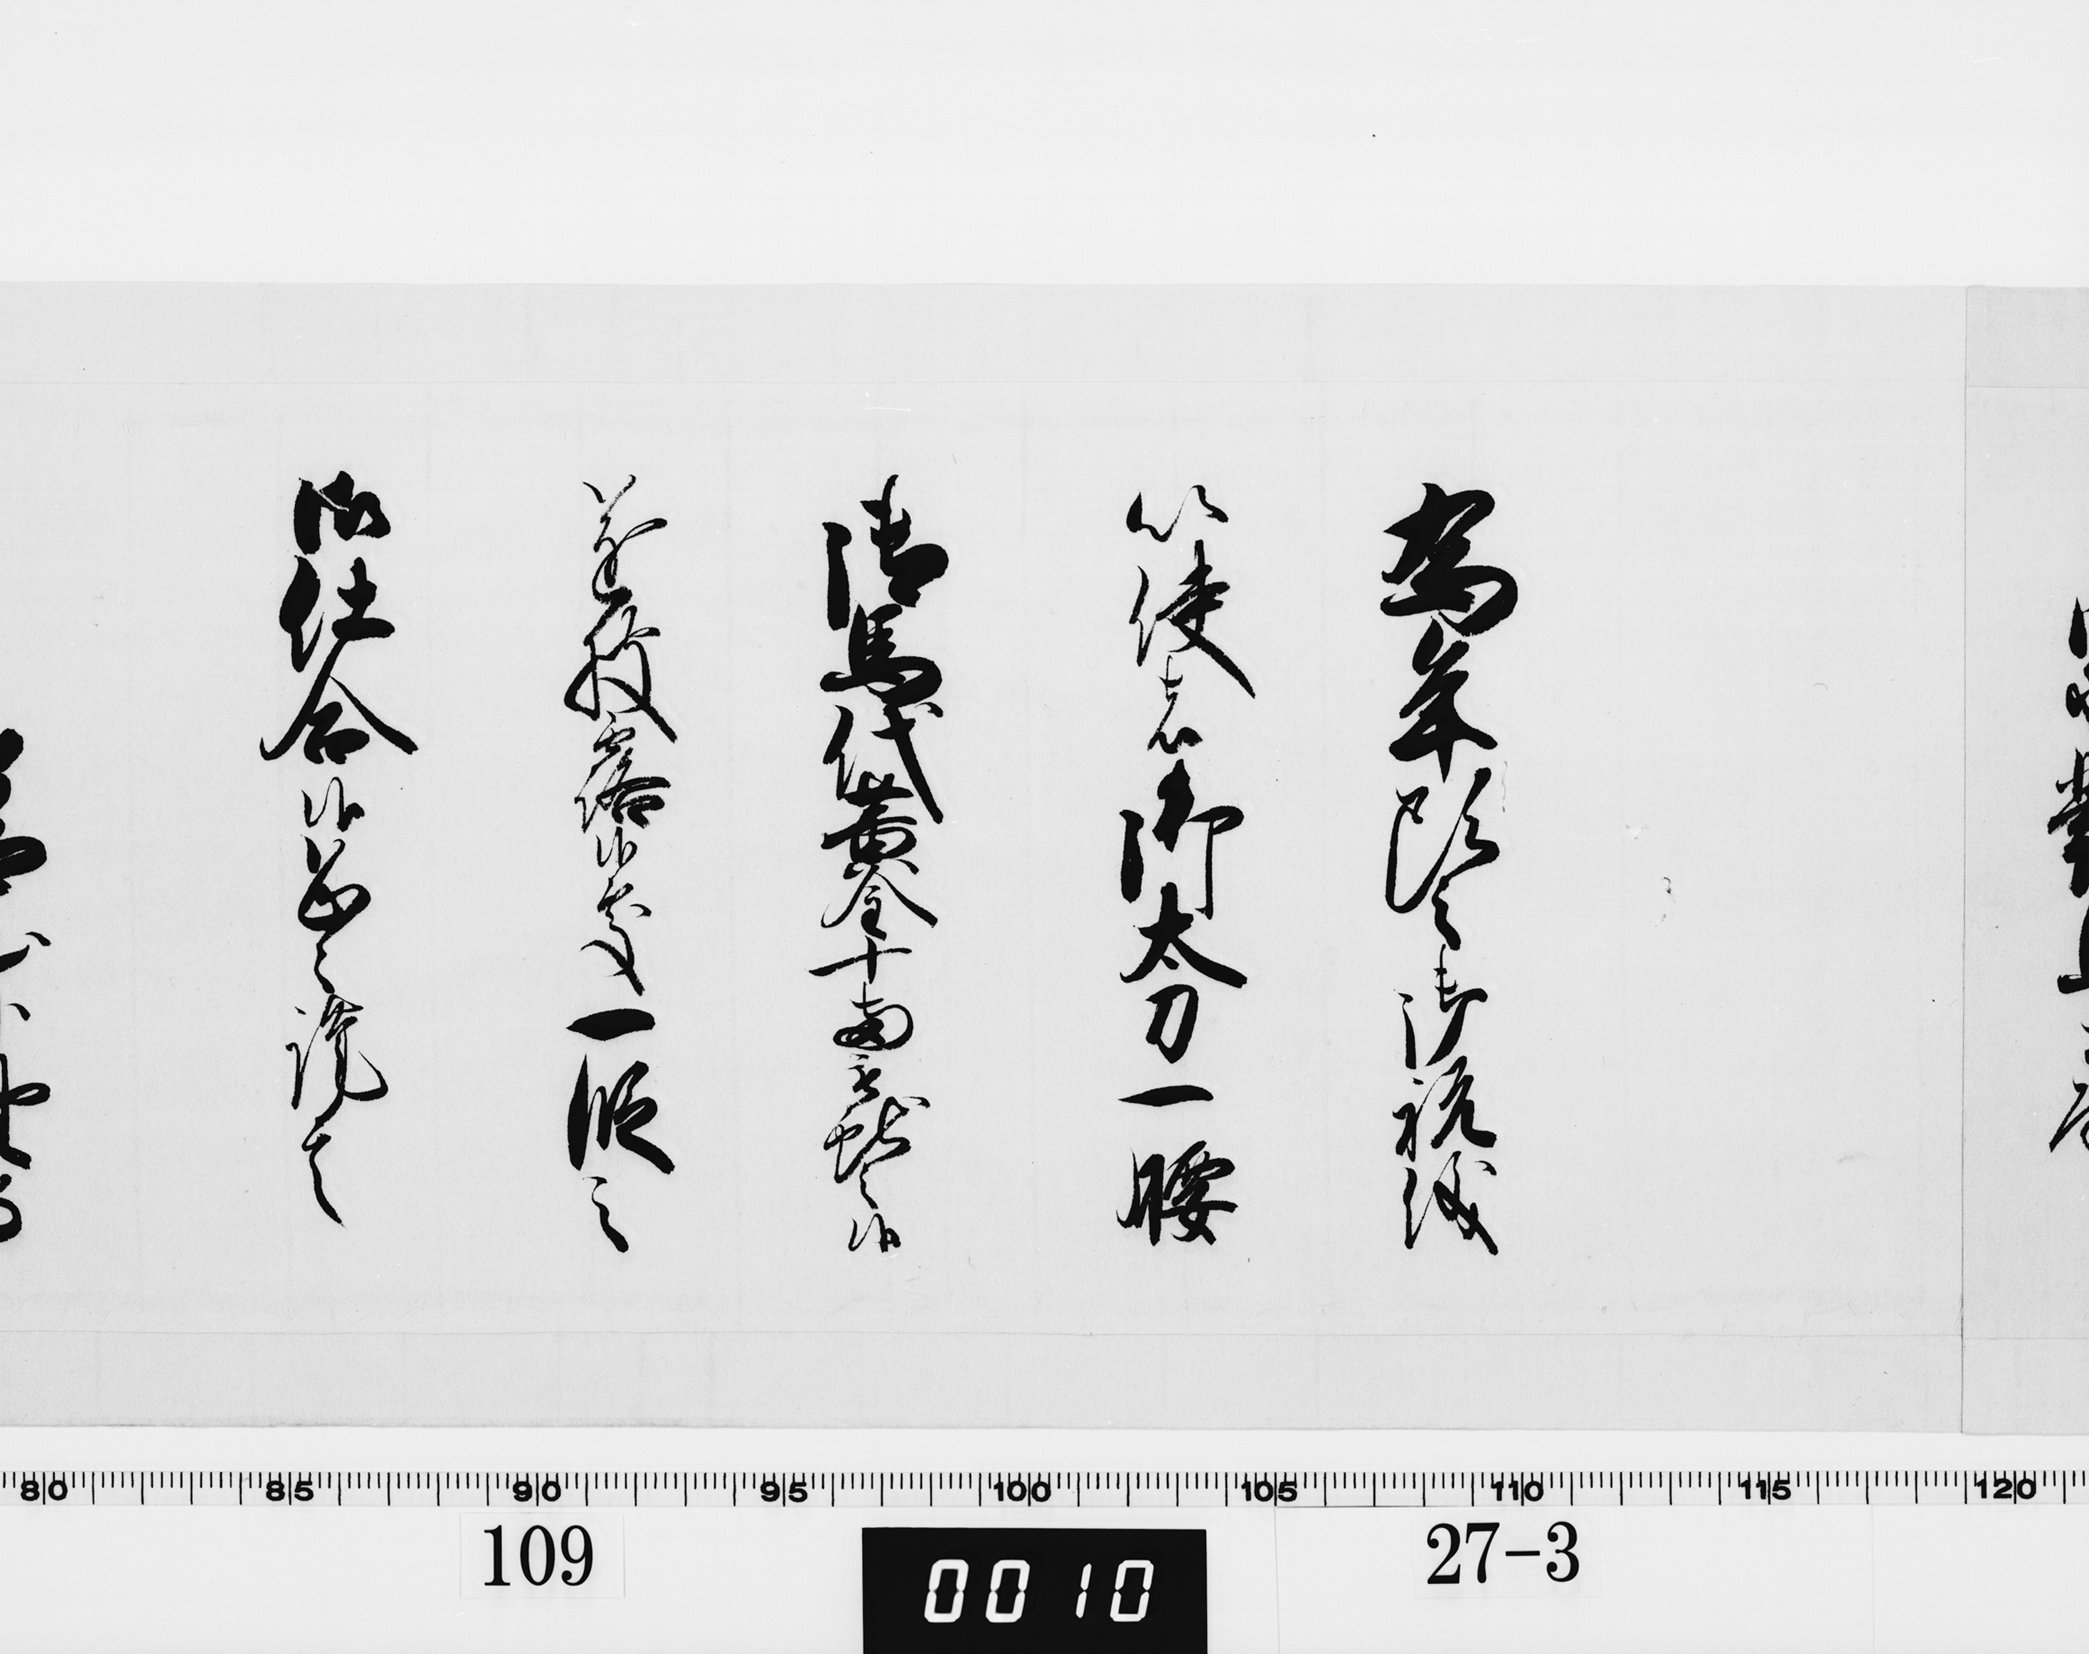 為年頭之御祝儀
以使者御太刀一腰
御馬代黄金十両被献之候
遂披露候処一段之
御仕合候恐々謹言
80 85 90 95 100 105 110 115 120
109
0010
27-3